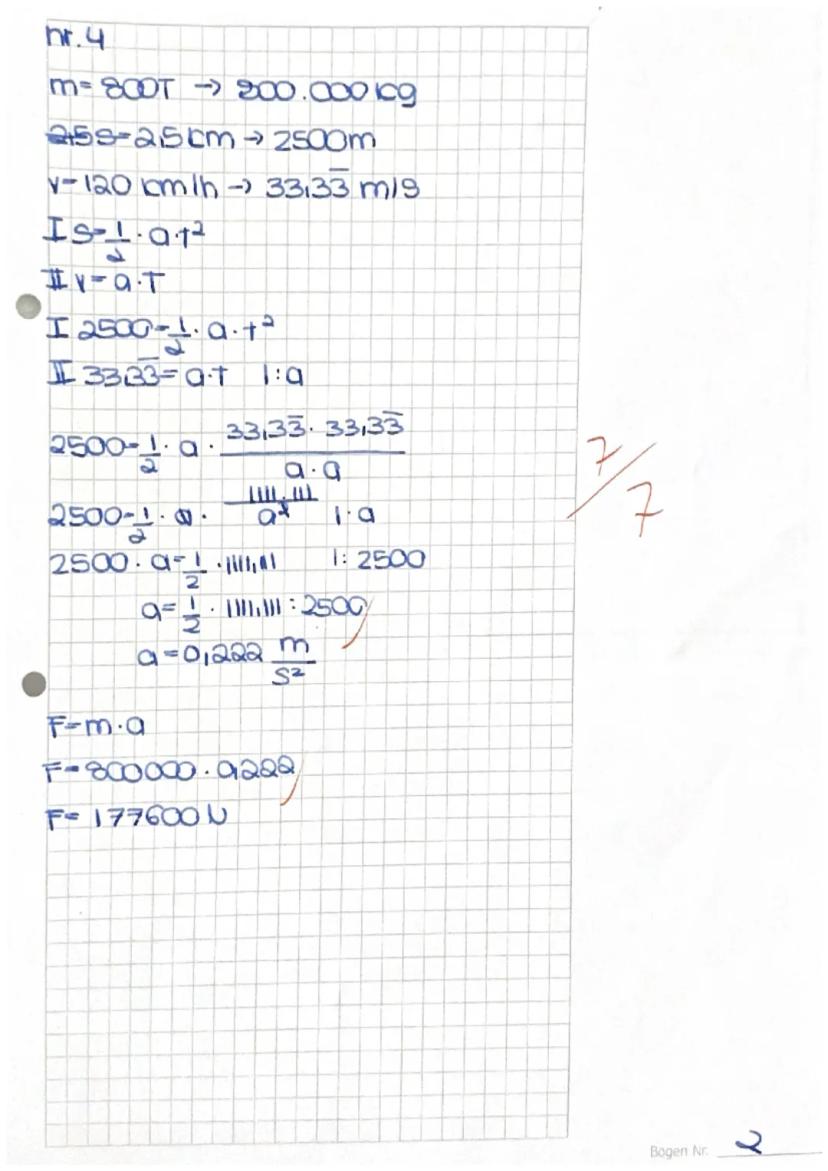 nr. 4
m= 800T → 800.000kg
s=2,5km → 2500m
v=120 km/h → 33,33̅ m/s
I s=½·a·t²
II v=a·T
I 2500=½·a·t²
II 33,33̅=a·t |:a
2500=½·a·(33,33̅·33,33̅)/(a·a)
7/7
2500=½·a·1111,111/a² |·a
2500·a=½·1111,11 |:2500
a=½·1111,111:2500
a=0,222 m/s²
F=m·a
F=800000·0,222
F=177600N
Bogen Nr. 2